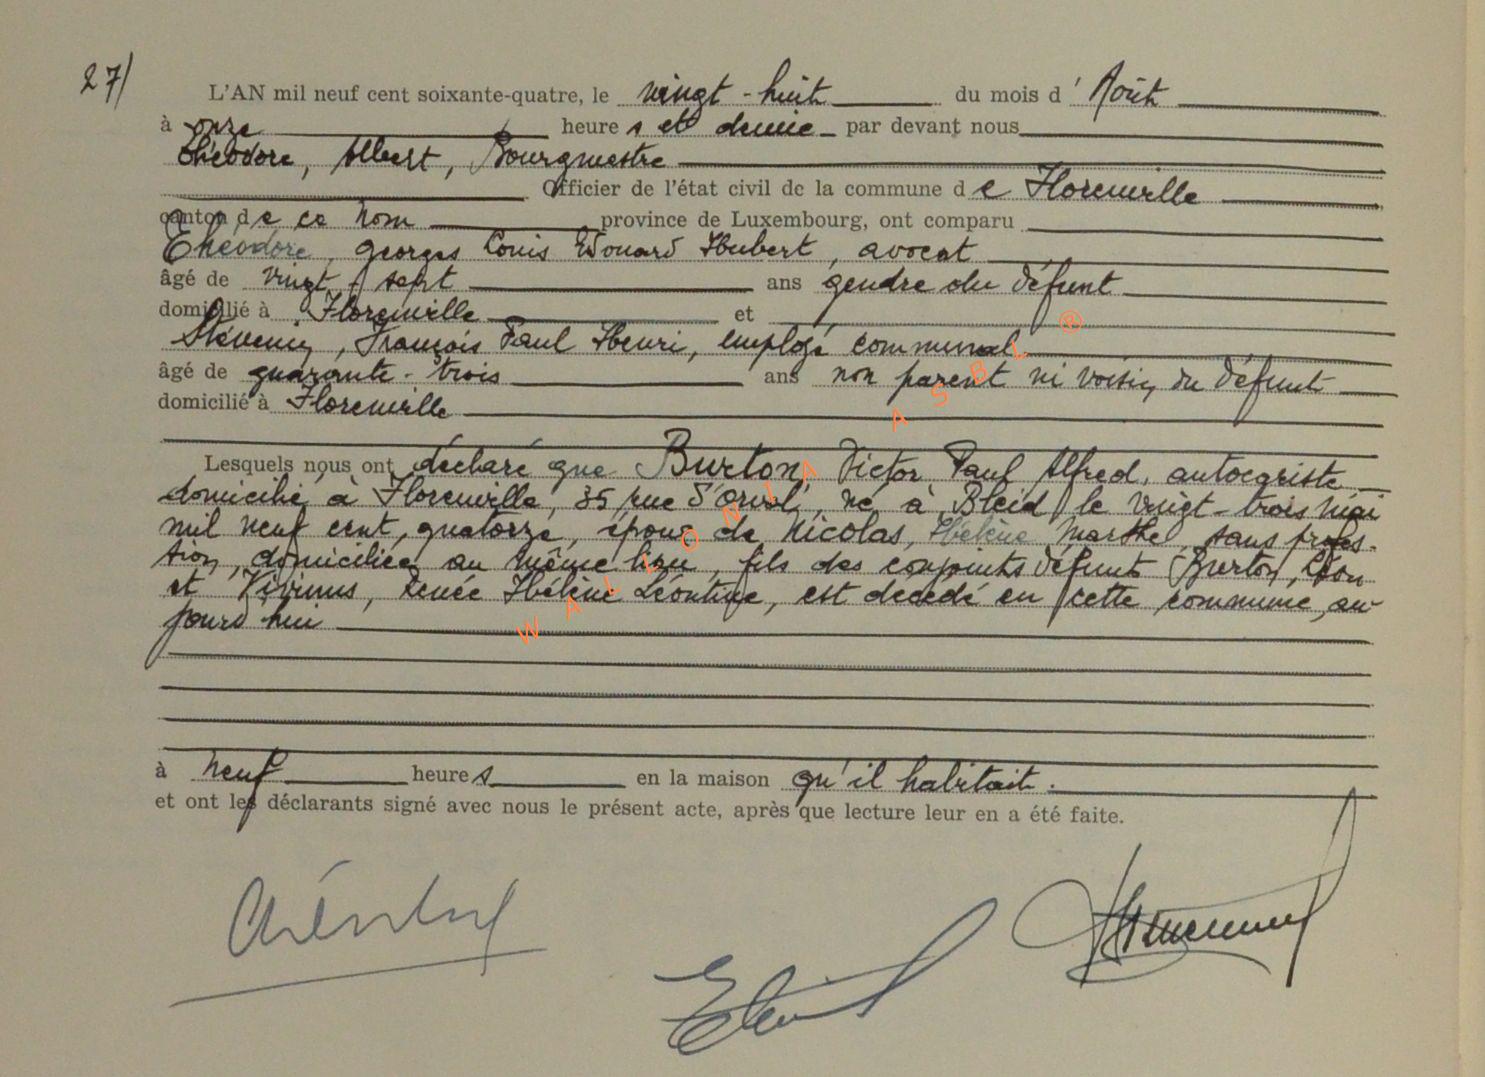 27/
L'AN mil neuf cent soixante-quatre, le vingt-huit du mois d' Août
à onze heure s et demie par devant nous
Théodore, Albert, Bourgmestre
Officier de l'état civil de la commune d e Florenville
canton d e ce nom province de Luxembourg, ont comparu
Théodore, Georges Louis Edouard Hubert, avocat
âgé de vingt-sept ans gendre du défunt
domicilié à Florenville et
Stévenin, François Paul Henri, employé communal
âgé de quarante-trois ans non parent ni voisin du défunt
domicilié à Florenville
Lesquels nous ont déclaré que Burton, Victor Paul Alfred, autocariste
domicilié à Florenville, 35 rue d'Orval, né à Bleid le vingt-trois mai
mil neuf cent quatorze, époux de Nicolas, Hélène Marthe sans profes-
sion, domiciliée au même lieu, fils des conjoints défunts Burton, Léon
et Vivinus, Renée Hélène Léontine, est décédé en cette commune, au-
jourd'hui
à neuf heure s en la maison qu'il habitait.
et ont les déclarants signé avec nous le présent acte, après que lecture leur en a été faite.
WALLONIA ASBL ®